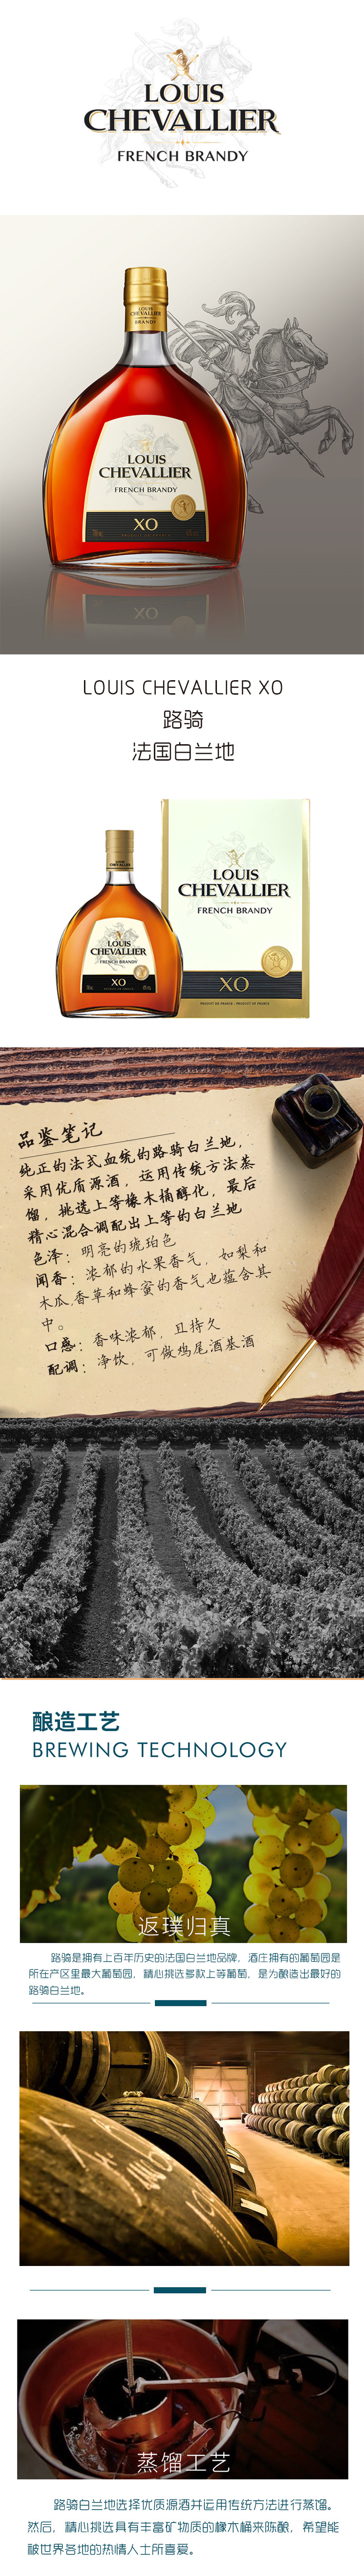 LOUIS
CHEVALLIER
FRENCH BRANDY
LOUIS
CHEVALLIER
BRANDY
LOUIS
CHEVALLIER
FRENCH BRANDY
XO
PRODUCT OF FRANCE
XO
LOUIS CHEVALLIER XO
路骑
法国白兰地
LOUIS
CHEVALLIER
FRENCH BRANDY
XO
LOUIS
CHEVALLIER
FRENCH BRANDY
XO
PRODUCT OF FRANCE · PRODUCT OF FRANCE
品鉴笔记
纯正的法式血统的路骑白兰地，
采用优质源酒，运用传统方法蒸
馏，挑选上等橡木桶醇化，最后
精心混合调配出上等的白兰地
色泽：明亮的琥珀色
闻香：浓郁的水果香气，如梨和
木瓜,香草和蜂蜜的香气也蕴含其
中。
口感：香味浓郁，且持久
配调：净饮，可做鸡尾酒基酒
酿造工艺
BREWING TECHNOLOGY
返璞归真
路骑是拥有上百年历史的法国白兰地品牌，酒庄拥有的葡萄园是
所在产区里最大葡萄园，精心挑选多款上等葡萄，是为酿造出最好的
路骑白兰地。
蒸馏工艺
路骑白兰地选择优质源酒并运用传统方法进行蒸馏。
然后，精心挑选具有丰富矿物质的橡木桶来陈酿，希望能
被世界各地的热情人士所喜爱。